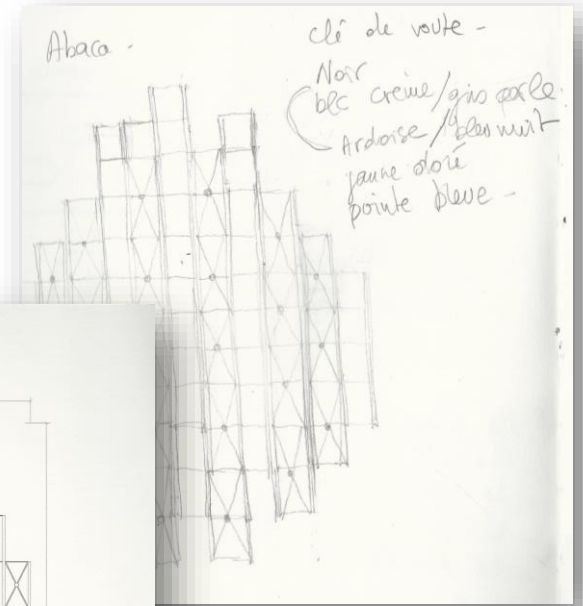 Abaca -
clé de voute -
Noir
blc crème/gris perle
Ardoise / bleu nuit
jaune doré
pointe bleue -